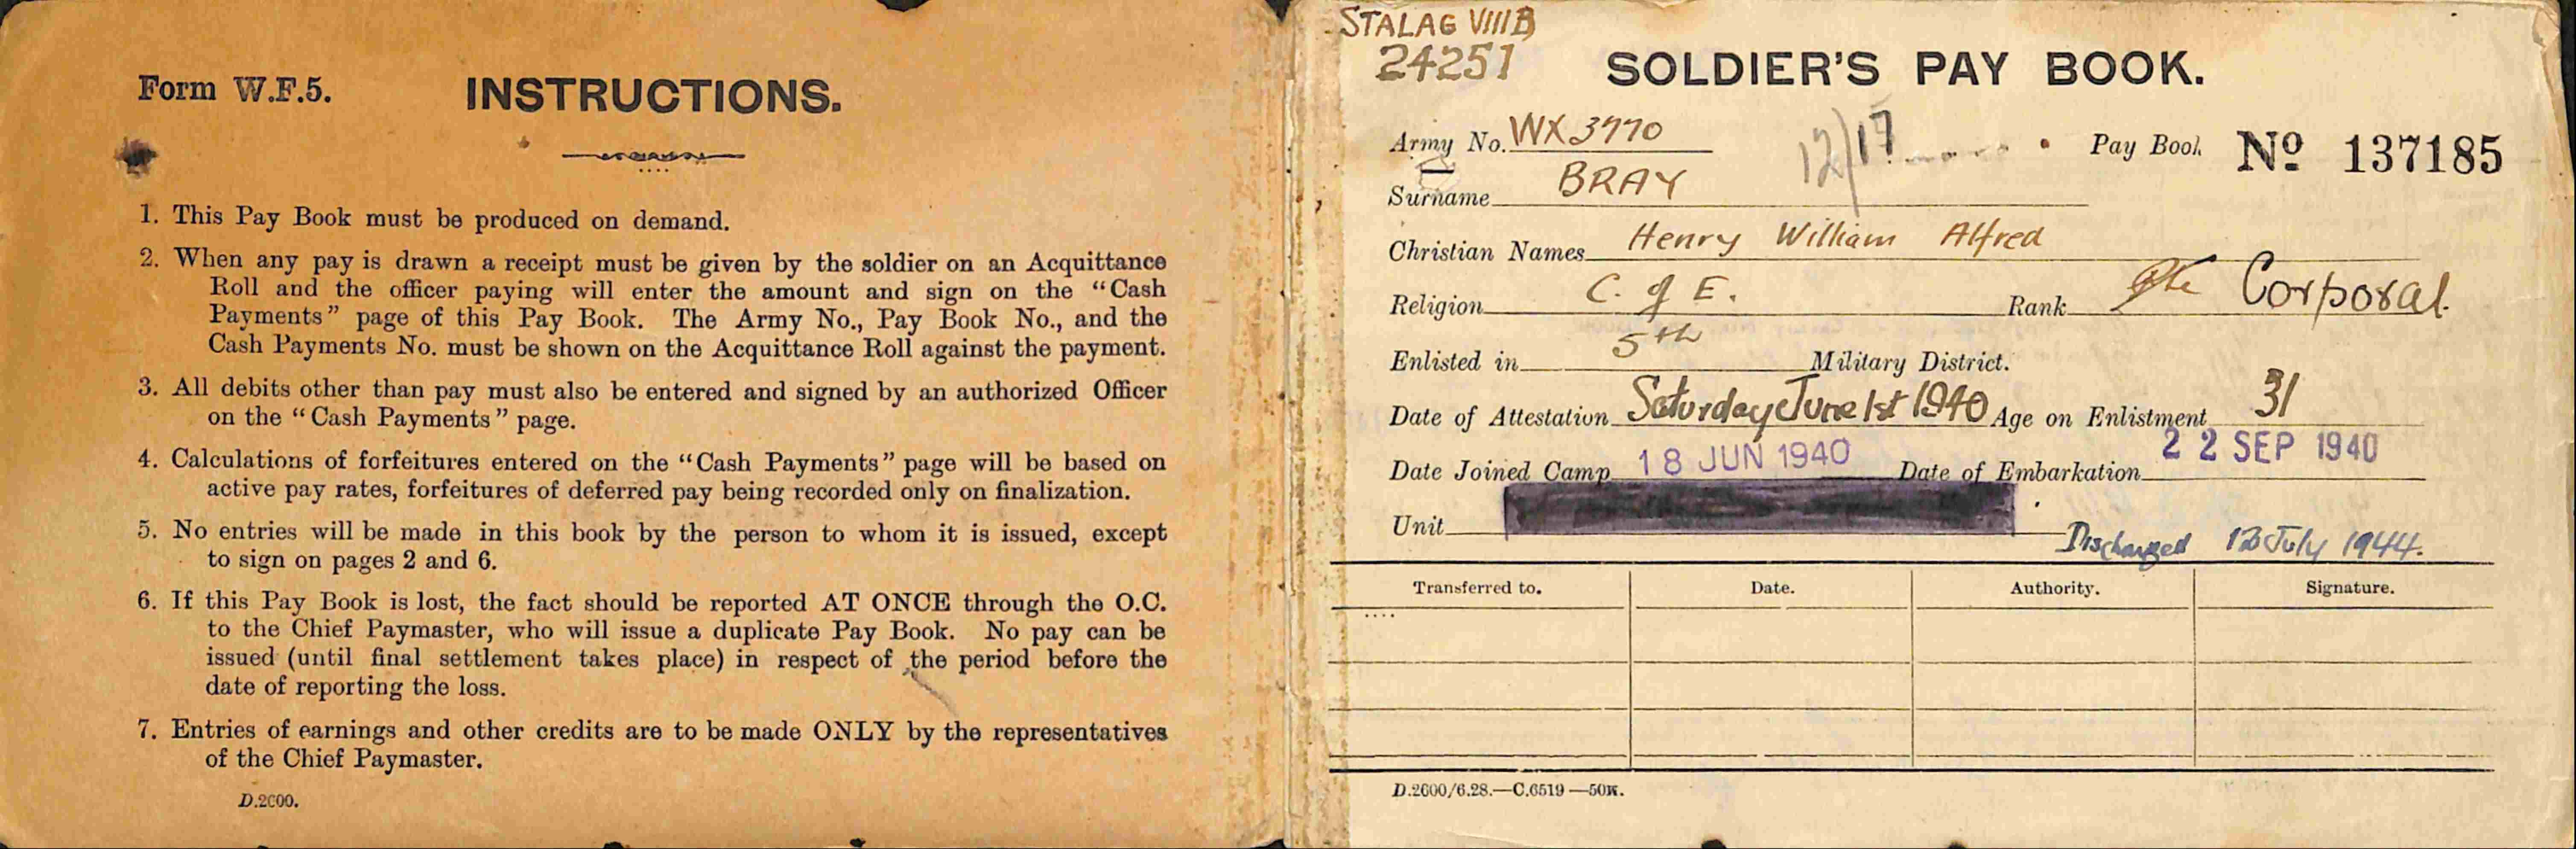 Form W.F.5. INSTRUCTIONS.
1. This Pay Book must be produced on demand.
2. When any pay is drawn a receipt must be given by the soldier on an Acquittance
Roll and the officer paying will enter the amount and sign on the "Cash
Payments" page of this Pay Book. The Army No., Pay Book No., and the
Cash Payments No. must be shown on the Acquittance Roll against the payment.
3. All debits other than pay must also be entered and signed by an authorized Officer
on the "Cash Payments" page.
4. Calculations of forfeitures entered on the "Cash Payments" page will be based on
active pay rates, forfeitures of deferred pay being recorded only on finalization.
5. No entries will be made in this book by the person to whom it is issued, except
to sign on pages 2 and 6.
6. If this Pay Book is lost, the fact should be reported AT ONCE through the O.C.
to the Chief Paymaster, who will issue a duplicate Pay Book. No pay can be
issued (until final settlement takes place) in respect of the period before the
date of reporting the loss.
7. Entries of earnings and other credits are to be made ONLY by the representatives
of the Chief Paymaster.
D.2600.
STALAG VIIIB
24251
SOLDIER'S PAY BOOK.
Army No. WX3770 12/17 Pay Book No 137185
Surname BRAY
Christian Names Henry William Alfred
Religion C. of E. Rank Pte Corporal.
Enlisted in 5th Military District.
Date of Attestation Saturday June 1st 1940 Age on Enlistment 31
Date Joined Camp 18 JUN 1940 Date of Embarkation 22 SEP 1940
Unit
Discharged July 1944.
Transferred to. Date. Authority. Signature.
D.2600/6.28.—C.6519—50K.